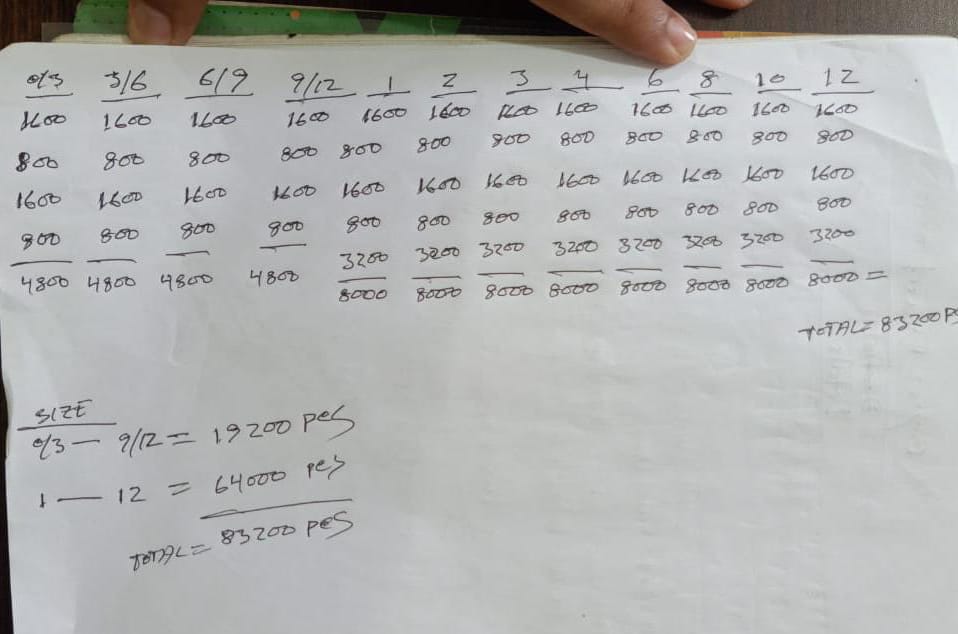 0/3 3/6 6/9 9/12 1 2 3 4 6 8 10 12
1600 1600 1600 1600 1600 1600 1600 1600 1600 1600 1600 1600
800 800 800 800 800 800 800 800 800 800 800 800
1600 1600 1600 1600 1600 1600 1600 1600 1600 1600 1600 1600
800 800 800 800 800 800 800 800 800 800 800 800
3200 3200 3200 3200 3200 3200 3200 3200
4800 4800 4800 4800 8000 8000 8000 8000 8000 8000 8000 8000 =
TOTAL = 83200 PS
SIZE
0/3 — 9/12 = 19200 pcs
1 — 12 = 64000 pcs
TOTAL = 83200 pcs